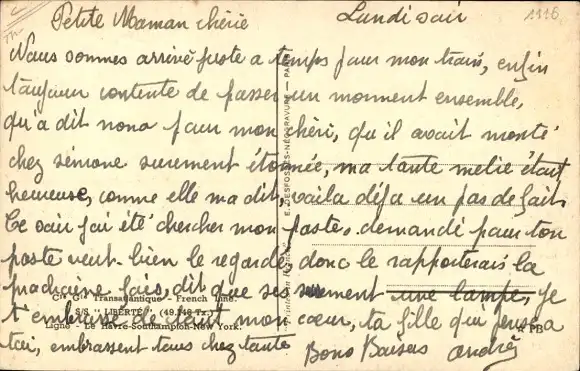 Petite Maman chérie
Lundi soir
1116
Nous sommes arrivé juste a temps pour mon train, enfin
toujour contente de passer un monment ensemble,
qu'a dit nona pour mon chéri, qu'il avait monté
chez sémone surement étonnée, ma tante melie était
heureuse, comme elle ma dit, voila déja un pas de fait.
Ce soir j'ai été chercher mon poste, demandé pour ton
poste veut-bien le regardé, donc le rapporterais la
prochaine fois, dit que ses surement une lampe, je
t'embrasse de tout mon cœur, ta fille qui pense a
toi, embrassent tous chez tante
Bons Baisers andrée
Cie Gle Transatlantique - French Line.
S/S "LIBERTÉ" (49.746 Tx.)
Ligne Le Havre-Southampton-New York.
E. DESFOSSÉS-NÉOGRAVURE — PARIS
PB